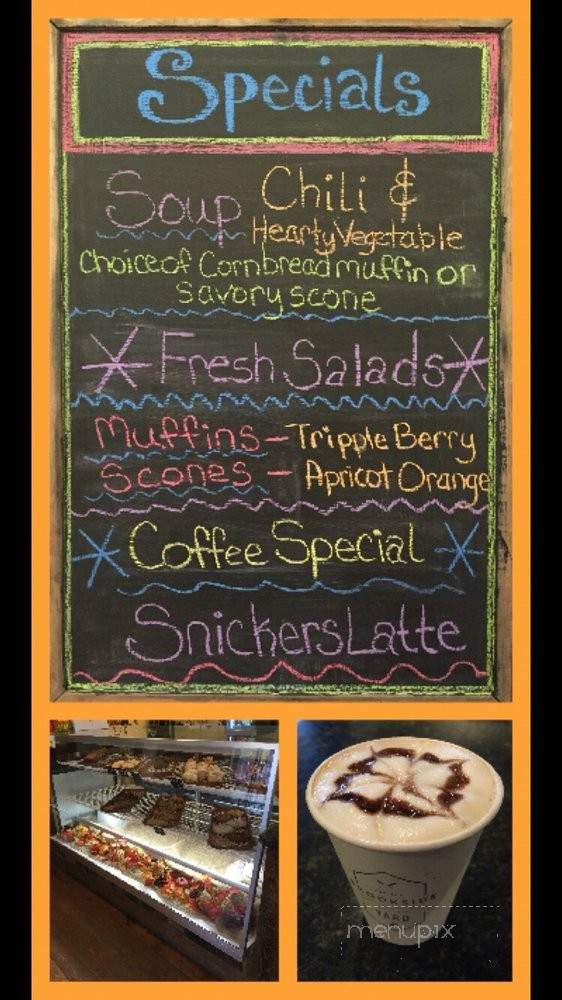 Specials
Soup Chili &
Hearty Vegetable
choice of Cornbread muffin or
savory scone
Fresh Salads
Muffins - Tripple Berry
Scones - Apricot Orange
Coffee Special
Snickers Latte
YARD
menupix